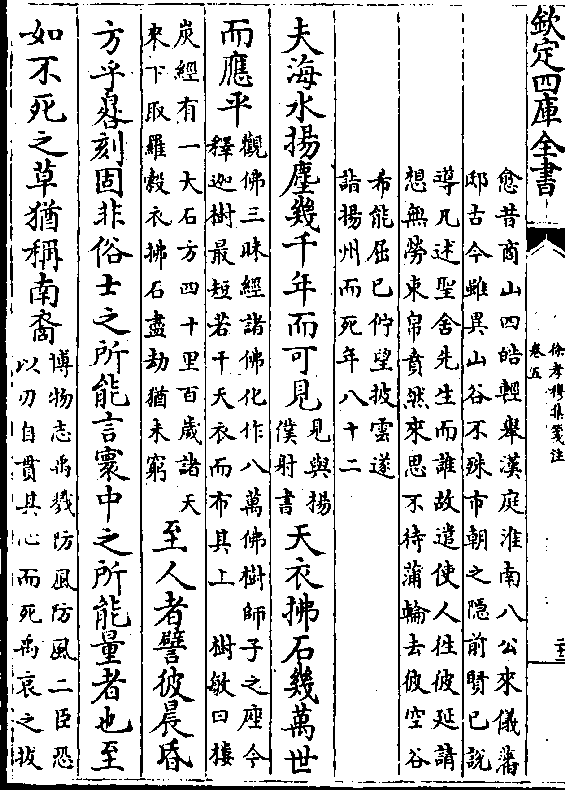 欽定四庫全書
徐孝穆集箋注
卷五
愈昔商山四皓輕舉漢庭淮南八公來儀藩
邸古今雖異山谷不殊市朝之隱前賢已說
導凡述聖舍先生而誰故遣使人往彼延請
想無勞束帛賁然來思不待蒲輪去彼空谷
希能屈已佇望披雲遂
詣揚州而死年八十二
夫海水揚塵幾千年而可見
見與揚
僕射書
天衣拂石幾萬世
而應平
觀佛三昧經諸佛化作八萬佛樹師子之座令
釋迦樹最短若干天衣而布其上 樹敏曰樓
炭經有一大石方四十里百歲諸天
來下取羅縠衣拂石盡劫猶未窮
至人者譬彼晨昏
方乎晷刻固非俗士之所能言寰中之所能量者也至
如不死之草猶稱南裔
博物志禹戮防風防風二臣恐
以刃自貫其心而死禹哀之拔